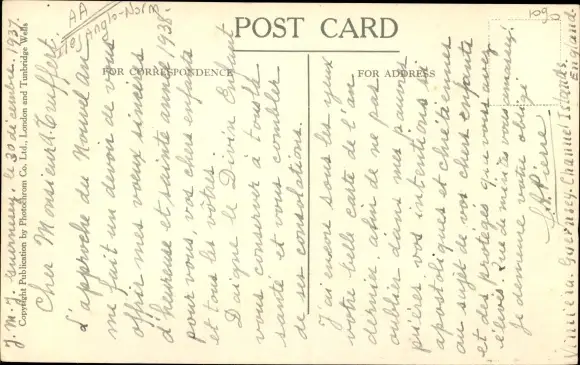 POST CARD
FOR CORRESPONDENCE
FOR ADDRESS
Copyright Publication by Photochrom Co. Ltd., London and Tunbridge Wells
AA
Iles Anglo-Norm
1090
J. M. J. Guernesey, le 30 décembre, 1937.
Cher Monsieur A. Truffert
L'approche du Nouvel An
me fait un devoir de vous
offrir mes voeux sincères
d'heureuse et sainte année 1938.
pour vous vos chers enfants
et tous les vôtres.
Daigne le Divin Enfant
vous conserver à tous la
santé et vous combler
de ses consolations.
J'ai encore sous les yeux
votre belle carte de l'an
dernier, afin de ne pas
oublier dans mes pauvres
prières vos intentions si
apostoliques et chrétiennes
au sujet de vos chers enfants
et des protégés que vous avez
élevés. Que de mérites vous
Je demeure votre obligé
Pierre
Guernsey. Channel Islands.
England.